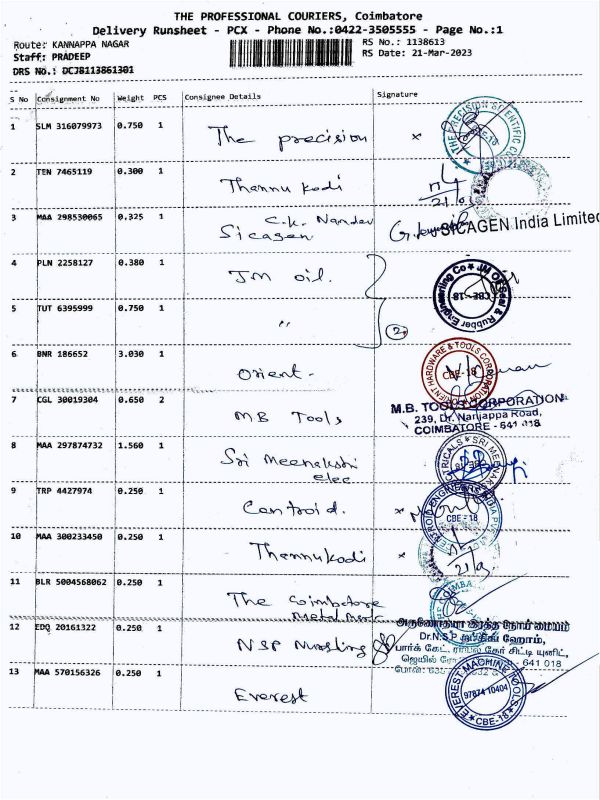 THE PROFESSIONAL COURIERS, Coimbatore
Delivery Runsheet - PCX - Phone No.:0422-3505555 - Page No.:1
Route: KANNAPPA NAGAR
RS No.: 1138613
Staff: PRADEEP
RS Date: 21-Mar-2023
DRS No.: DCJ8113861301
S No Consignment No Weight PCS Consignee Details Signature
1 SLM 316079973 0.750 1 The precision x
THE PRECISION SCIENTIFIC CO
CBE-18
2 TEN 7465119 0.300 1 Thannukodi
3 MAA 298530065 0.325 1 C.K. Nandev
Sicagen
SICAGEN India Limited
4 PLN 2258127 0.380 1 JM oil.
JM Oil Seal & Rubber Engineering Co
CBE-18
5 TUT 6395999 0.750 1 "
2
6 BNR 186652 3.030 1 Orient-
ORIENT HARDWARE & TOOLS CORPORATION
CBE-18
7 CGL 30019304 0.650 2 MB Tools
M.B. TOOLS CORPORATION
239, Dr. Nanjappa Road,
COIMBATORE - 641 018
8 MAA 297874732 1.560 1 Sri Meenakshi
elec
9 TRP 4427974 0.250 1 Centroid. x
CBE - 18
10 MAA 300233450 0.250 1 Thannukodi x
21/3
11 BLR 5004568062 0.250 1 The Coimbatore
12 EDQ 20161322 0.250 1 NSP Nursing
Dr.N.S.P
பார்க் கேட்,
- 641 018
13 MAA 570156326 0.250 1 Everest
EVEREST MACHINE TOOLS
97874 10404
CBE-18